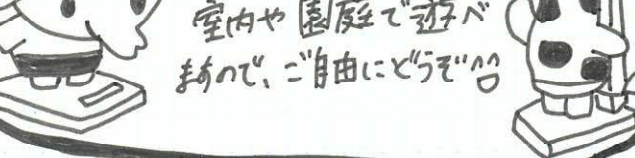 室内や園庭で遊べ
ますので、ご自由にどうぞ^^